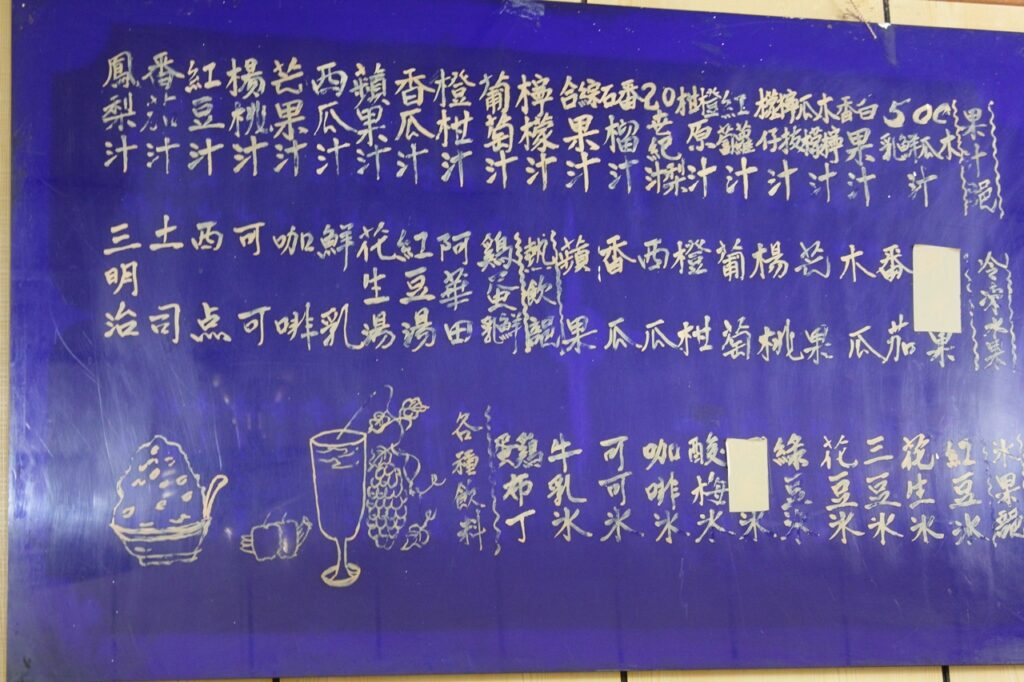 果汁
500
木瓜鮮乳汁
百香果汁
木瓜檸檬汁
檸檬桔仔汁
紅蘿蔔汁
橙柑原汁
20世紀梨汁
番石榴汁
綜合果汁
檸檬汁
葡萄汁
橙柑汁
香瓜汁
蘋果汁
西瓜汁
芒果汁
楊桃汁
紅豆汁
番茄汁
鳳梨汁
冷凍水菓
果
番茄
木瓜
芒果
楊桃
葡萄
橙柑
西瓜
香瓜
蘋果
熱飲
鷄蛋鮮乳
阿華田
紅豆湯
花生湯
鮮乳
咖啡
可可
西点
土司
三明治
氷果類
紅豆氷
花生氷
三豆氷
花豆氷
綠豆氷
氷
酸梅氷
咖啡氷
可可氷
牛乳氷
鷄蛋布丁
各種飲料